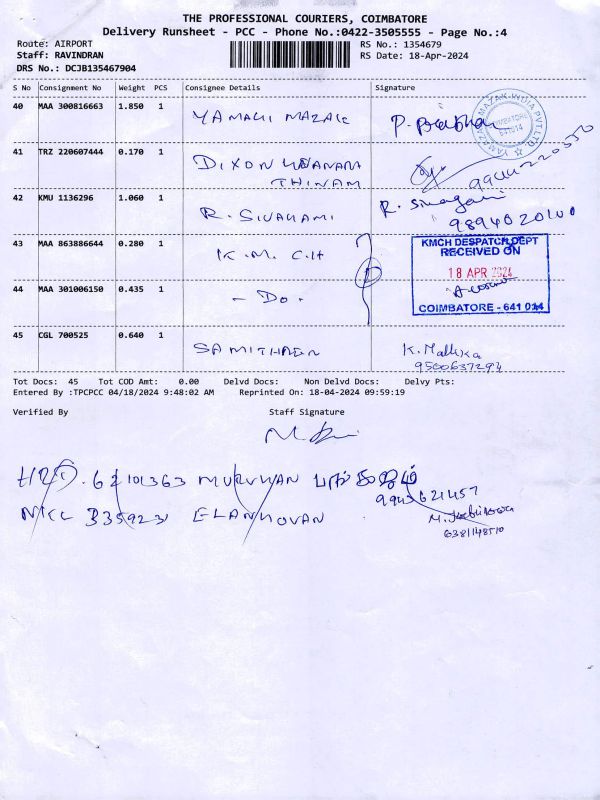 THE PROFESSIONAL COURIERS, COIMBATORE
Delivery Runsheet - PCC - Phone No.:0422-3505555 - Page No.:4
Route: AIRPORT
Staff: RAVINDRAN
DRS No.: DCJB135467904
RS No.: 1354679
RS Date: 18-Apr-2024
S No Consignment No Weight PCS Consignee Details Signature
40 MAA 300816663 1.850 1 YAMAHI MAZAK P. Prabhu
YAMAZAKI MAZAK INDIA PVT LTD COIMBATORE 641014
41 TRZ 220607444 0.170 1 DIXON
THINAM
9944220550
42 KMU 1136296 1.060 1 R. SIVAHAMI R. Sivagami
9894020100
43 MAA 863886644 0.280 1 K.M. C.H
KMCH DESPATCH DEPT
RECEIVED ON
18 APR 2024
COIMBATORE - 641 014
44 MAA 301006150 0.435 1 - Do -
45 CGL 700525 0.640 1 SAMITHREN K. Mallika
9500637294
Tot Docs: 45 Tot COD Amt: 0.00 Delvd Docs: Non Delvd Docs: Delvy Pts:
Entered By :TPCPCC 04/18/2024 9:48:02 AM Reprinted On: 18-04-2024 09:59:19
Verified By Staff Signature
MURUHAN
9943621457
ELANHOVAN
6381148510